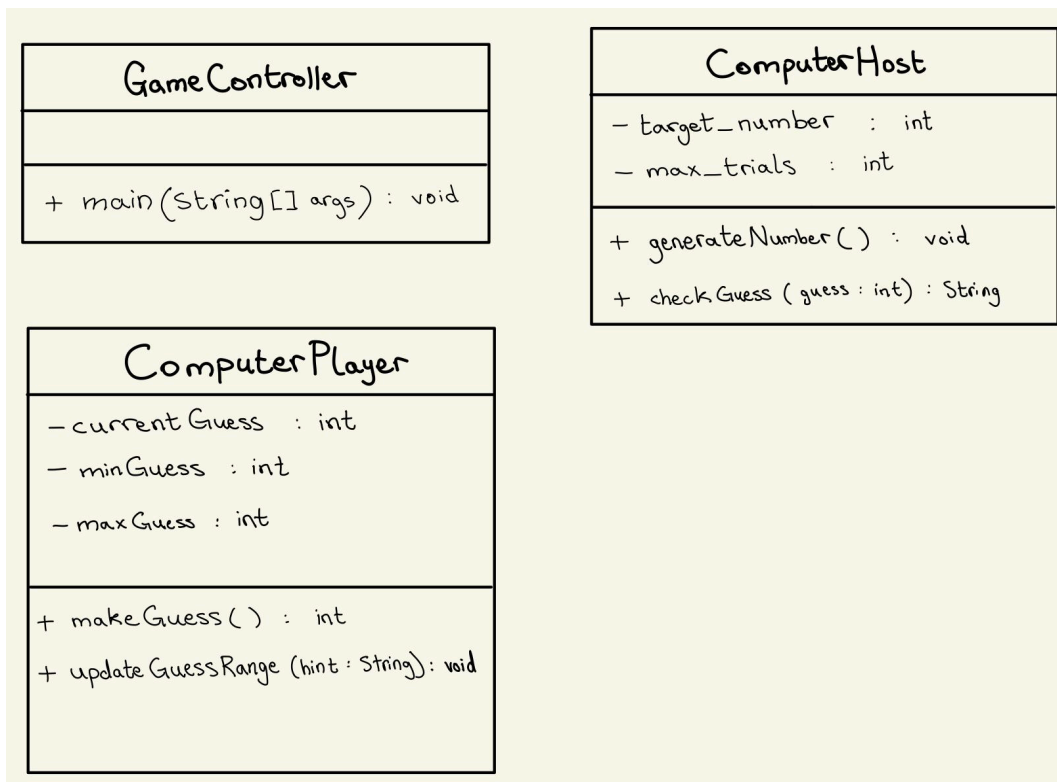 GameController
+ main(String[] args) : void
ComputerHost
- target_number : int
- max_trials : int
+ generateNumber() : void
+ checkGuess (guess : int) : String
ComputerPlayer
- currentGuess : int
- minGuess : int
- maxGuess : int
+ makeGuess() : int
+ updateGuessRange (hint : String) : void